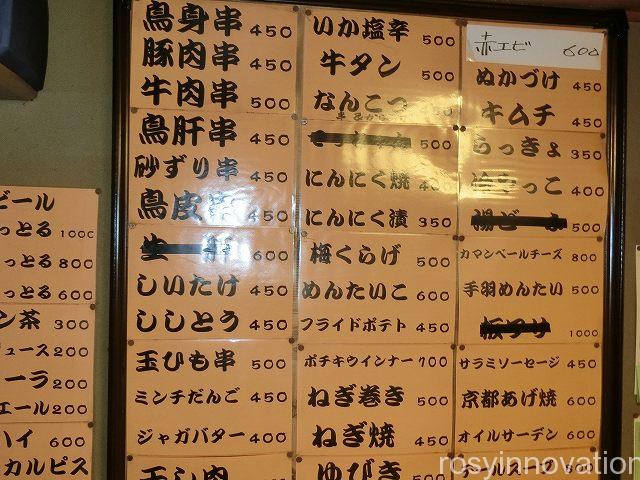 鳥身串 450
豚肉串 450
牛肉串 500
鳥肝串 450
砂ずり串 450
鳥皮串 450
600
しいたけ 450
ししとう 450
玉ひも串 500
ミンチだんご 450
ジャガバター 400
いか塩辛 500
牛タン 500
なんこつ
500
にんにく焼
にんにく漬 350
梅くらげ 500
めんたいこ 600
フライドポテト 450
ポチキウインナー 700
ねぎ巻き 500
ねぎ焼 450
ゆびき
赤エビ 600
ぬかづけ 450
キムチ 450
らっきょ 350
400
500
カマンベールチーズ 800
手羽めんたい 500
1000
サラミソーセージ 450
京都あげ焼 600
オイルサーデン 600
テールスープ
ビール
っとる 1000
っとる 800
っとる 600
ン茶 300
ュース 200
ーラ 200
エール 200
ハイ 600
カルピス
rosyinnovation